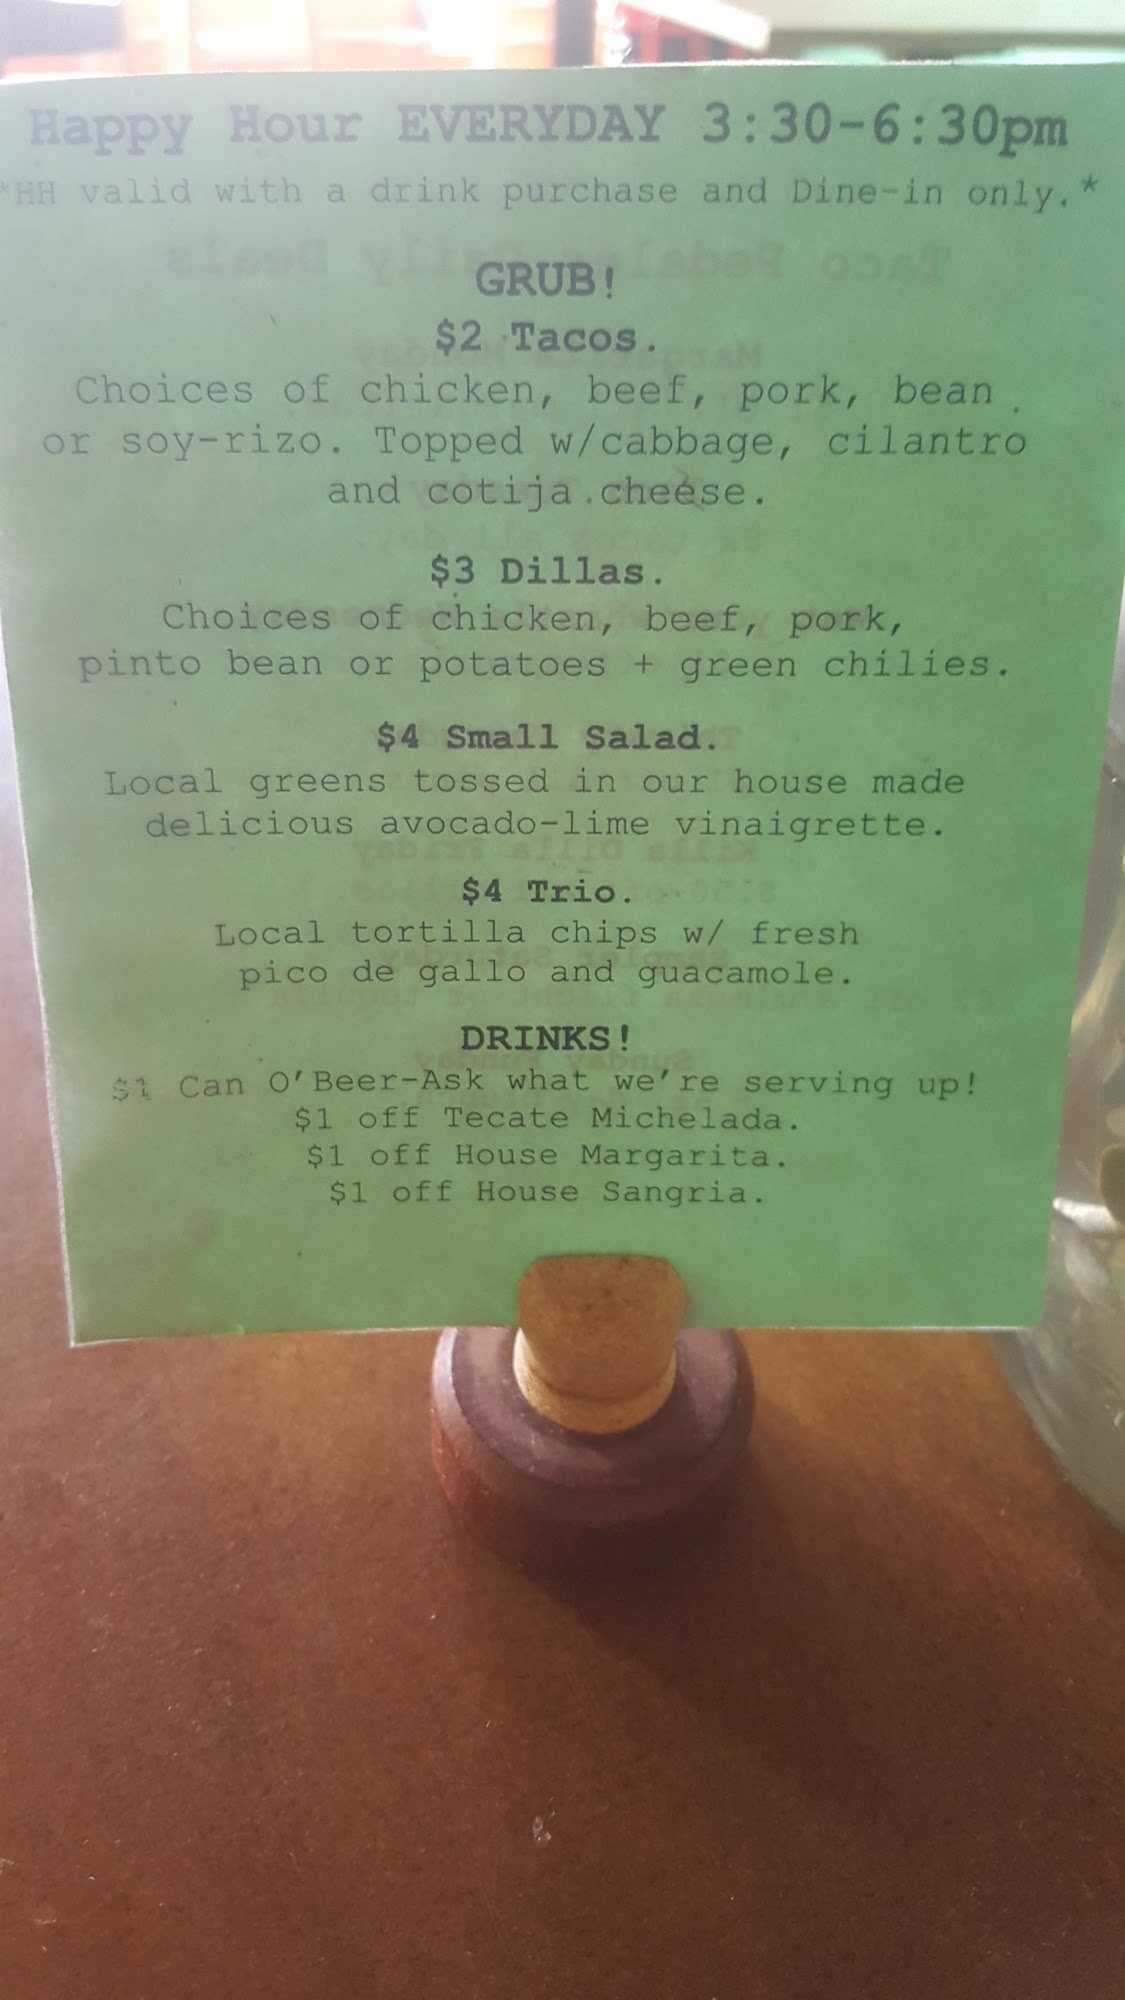 Happy Hour EVERYDAY 3:30-6:30pm
*HH valid with a drink purchase and Dine-in only.*
GRUB!
$2 Tacos.
Choices of chicken, beef, pork, bean
or soy-rizo. Topped w/cabbage, cilantro
and cotija cheese.
$3 Dillas.
Choices of chicken, beef, pork,
pinto bean or potatoes + green chilies.
$4 Small Salad.
Local greens tossed in our house made
delicious avocado-lime vinaigrette.
$4 Trio.
Local tortilla chips w/ fresh
pico de gallo and guacamole.
DRINKS!
$1 Can O'Beer-Ask what we're serving up!
$1 off Tecate Michelada.
$1 off House Margarita.
$1 off House Sangria.